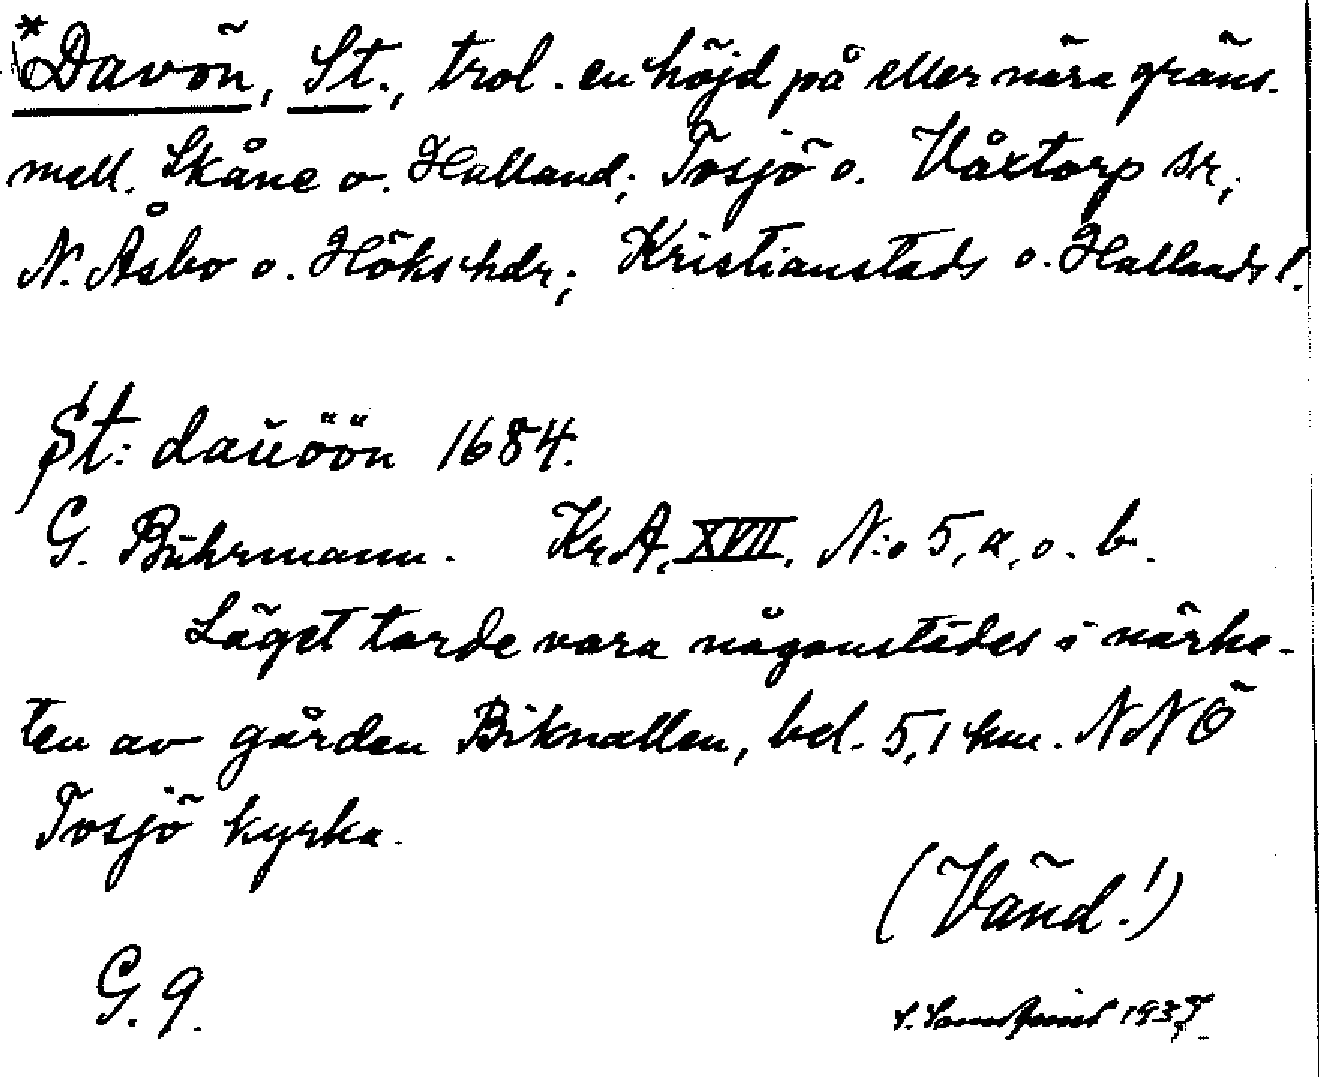 *Davön, St., trol. en höjd på eller nära gräns.
mell. Skåne o. Halland; Tosjö o. Våxtorp snr;
N. Åsbo o. Höks hdr; Kristianstads o. Hallands l.
St: daŭöön 1684.
G. Bührmann. KrA. XVII. N:o 5, a, o. b.
Läget torde vara någonstädes i närhe-
ten av gården Biknallen, bel. 5,1 km. NNÖ
Tosjö kyrka.
(Vänd!)
G. 9.
1937